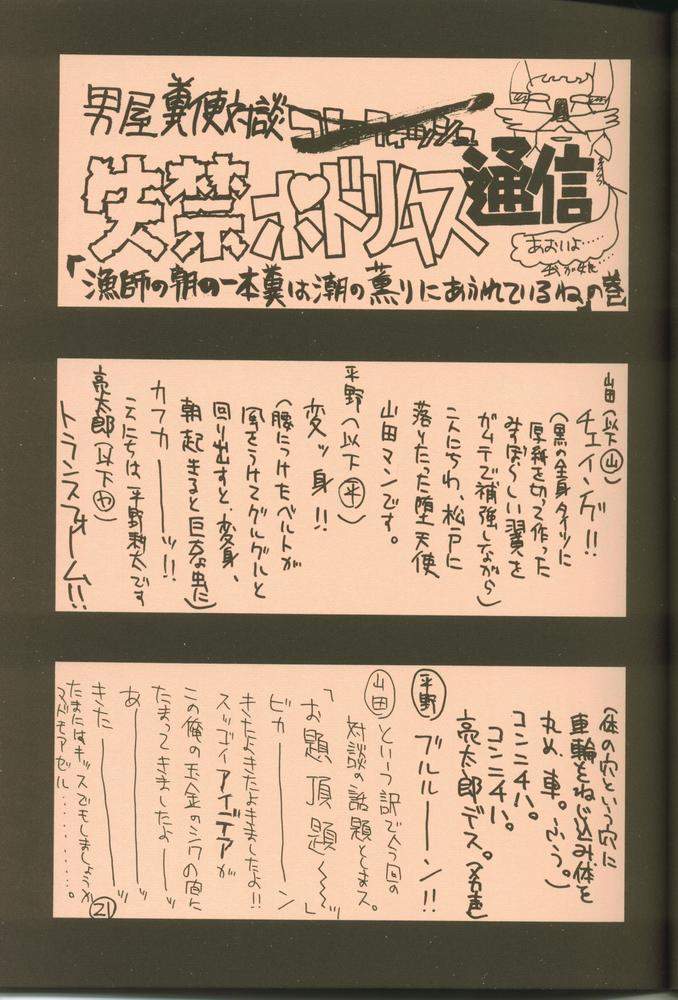 男屋糞便対談
失禁ボドリムス通信
あおいよ……
我が娘
「漁師の朝の一本糞は潮の薫りにあふれているね」の巻
山田(以下山)
チェイング!!
(黒の全身タイツに
厚紙を切って作った
みすぼらしい翼を
ガムテで補強しながら)
こんにちわ、松戸に
落りたった堕天使
山田マンです。
平野(以下平)
変ッ身!!
(腰につけたベルトが
風をうけてグルグルと
回り出すと、変身、
朝起きると巨大な虫に)
カフカーーッ!!
こんにちは平野耕太です
亮太郎(以下や)
トランスフォーム!!
(体の穴という穴に
車輪をねじ込み体を
丸め、車。ふう。)
コンニチハ。
コンニチハ。
亮太郎デス。(名声)
平野 ブルルーーン!!
山田 という訳で今回の
対談の話題とします。
「お題頂題〜〜」
ピカーーーン
きたよきたよきましたよ!!
スッゴイアイデアが
この俺の玉金のシワの間に
たまってきましたよーーッ
あーーーーッ
きたーーーーッ
たまにはキッスでもしましょうか
マドモアゼル…………。
21